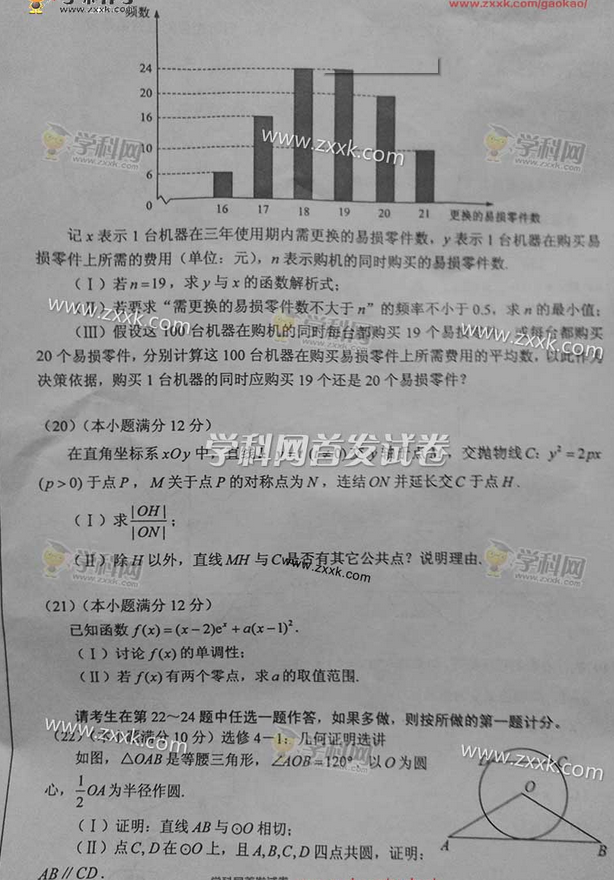 学科网
www.zxxk.com
www.zxxk.com/gaokao/
频数
24
20
16
10
6
0
16 17 18 19 20 21 更换的易损零件数
学科网
www.zxxk.com
www.zxxk.com
学科网
www.zxxk.com
记 x 表示 1 台机器在三年使用期内需更换的易损零件数，y 表示 1 台机器在购买易
损零件上所需的费用（单位：元），n 表示购机的同时购买的易损零件数.
（Ⅰ）若 n=19，求 y 与 x 的函数解析式；
（Ⅱ）若要求“需更换的易损零件数不大于 n”的频率不小于 0.5，求 n 的最小值；
（Ⅲ）假设这 100 台机器在购机的同时每台都购买 19 个易损 每台都购买
www.zxxk.com
学科网
www.zxxk.com
www.zxxk.com
20 个易损零件，分别计算这 100 台机器在购买易损零件上所需费用的平均数，以此作为
决策依据，购买 1 台机器的同时应购买 19 个还是 20 个易损零件？
（20）（本小题满分 12 分）
学科网首发试卷
在直角坐标系 xOy 中，交抛物线 C：y² = 2px
(p > 0) 于点 P，M 关于点 P 的对称点为 N，连结 ON 并延长交 C 于点 H.
（Ⅰ）求 |OH| / |ON|；
（Ⅱ）除 H 以外，直线 MH 与 C 是否有其它公共点？说明理由.
学科网
www.zxxk.com
www.zxxk.com
学科网
www.zxxk.com
（21）（本小题满分 12 分）
已知函数 f(x) = (x − 2)eˣ + a(x − 1)².
（Ⅰ）讨论 f(x) 的单调性；
（Ⅱ）若 f(x) 有两个零点，求 a 的取值范围.
请考生在第 22～24 题中任选一题作答，如果多做，则按所做的第一题计分。
（22）（本小题满分 10 分）选修 4－1：几何证明选讲
www.zxxk.com
学科网
www.zxxk.com
www.zxxk.com
如图，△OAB 是等腰三角形，∠AOB = 120°. 以 O 为圆
心，1/2 OA 为半径作圆.
（Ⅰ）证明：直线 AB 与⊙O 相切；
（Ⅱ）点 C, D 在⊙O 上，且 A, B, C, D 四点共圆，证明：
AB // CD.
D C
O
A B
学科网首发试卷